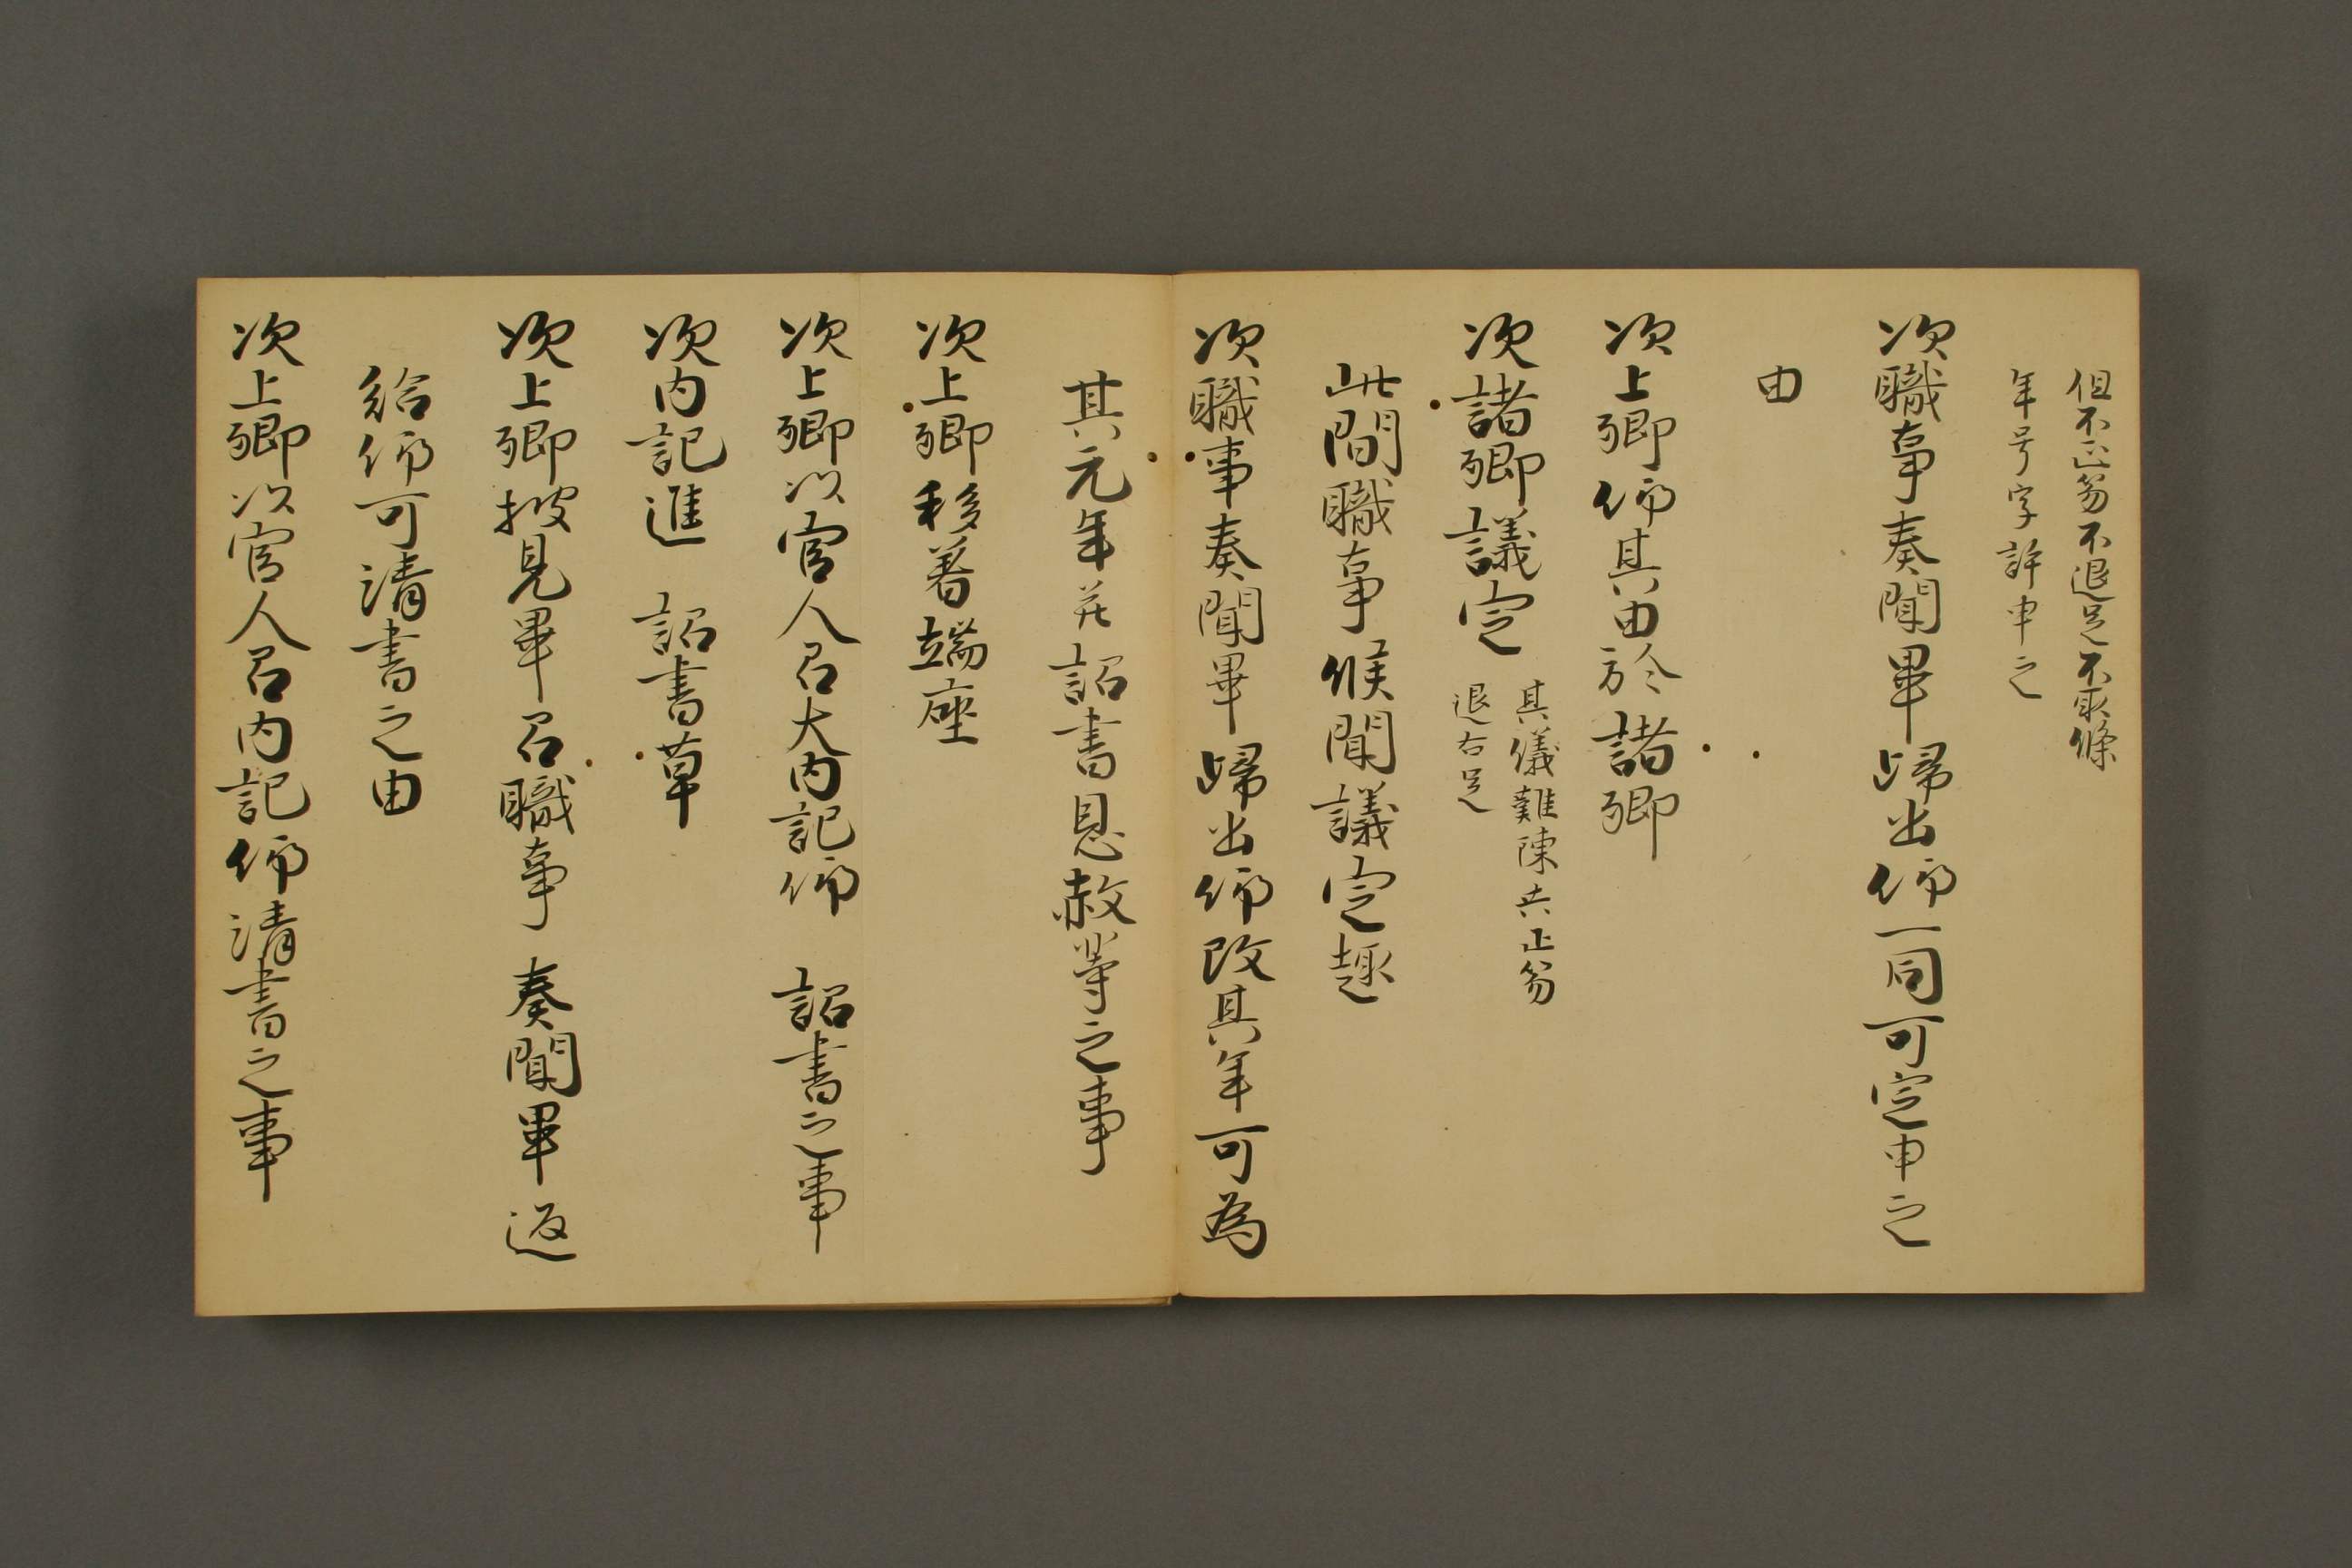 但不正笏不退足不取條
年号字許申之
次職事奏聞畢帰出仰一同可定申之
由
次上卿仰其由於諸卿
次諸卿議定 其儀難陳共正笏
退右足
此間職事候聞議定趣
次職事奏聞畢帰出仰改其年可為
其元年并詔書恩赦等之事
次上卿移着端座
次上卿以官人召大内記仰 詔書之事
次内記進 詔書草
次上卿披見畢召職事 奏聞畢返
給仰可清書之由
次上卿以官人召内記仰清書之事